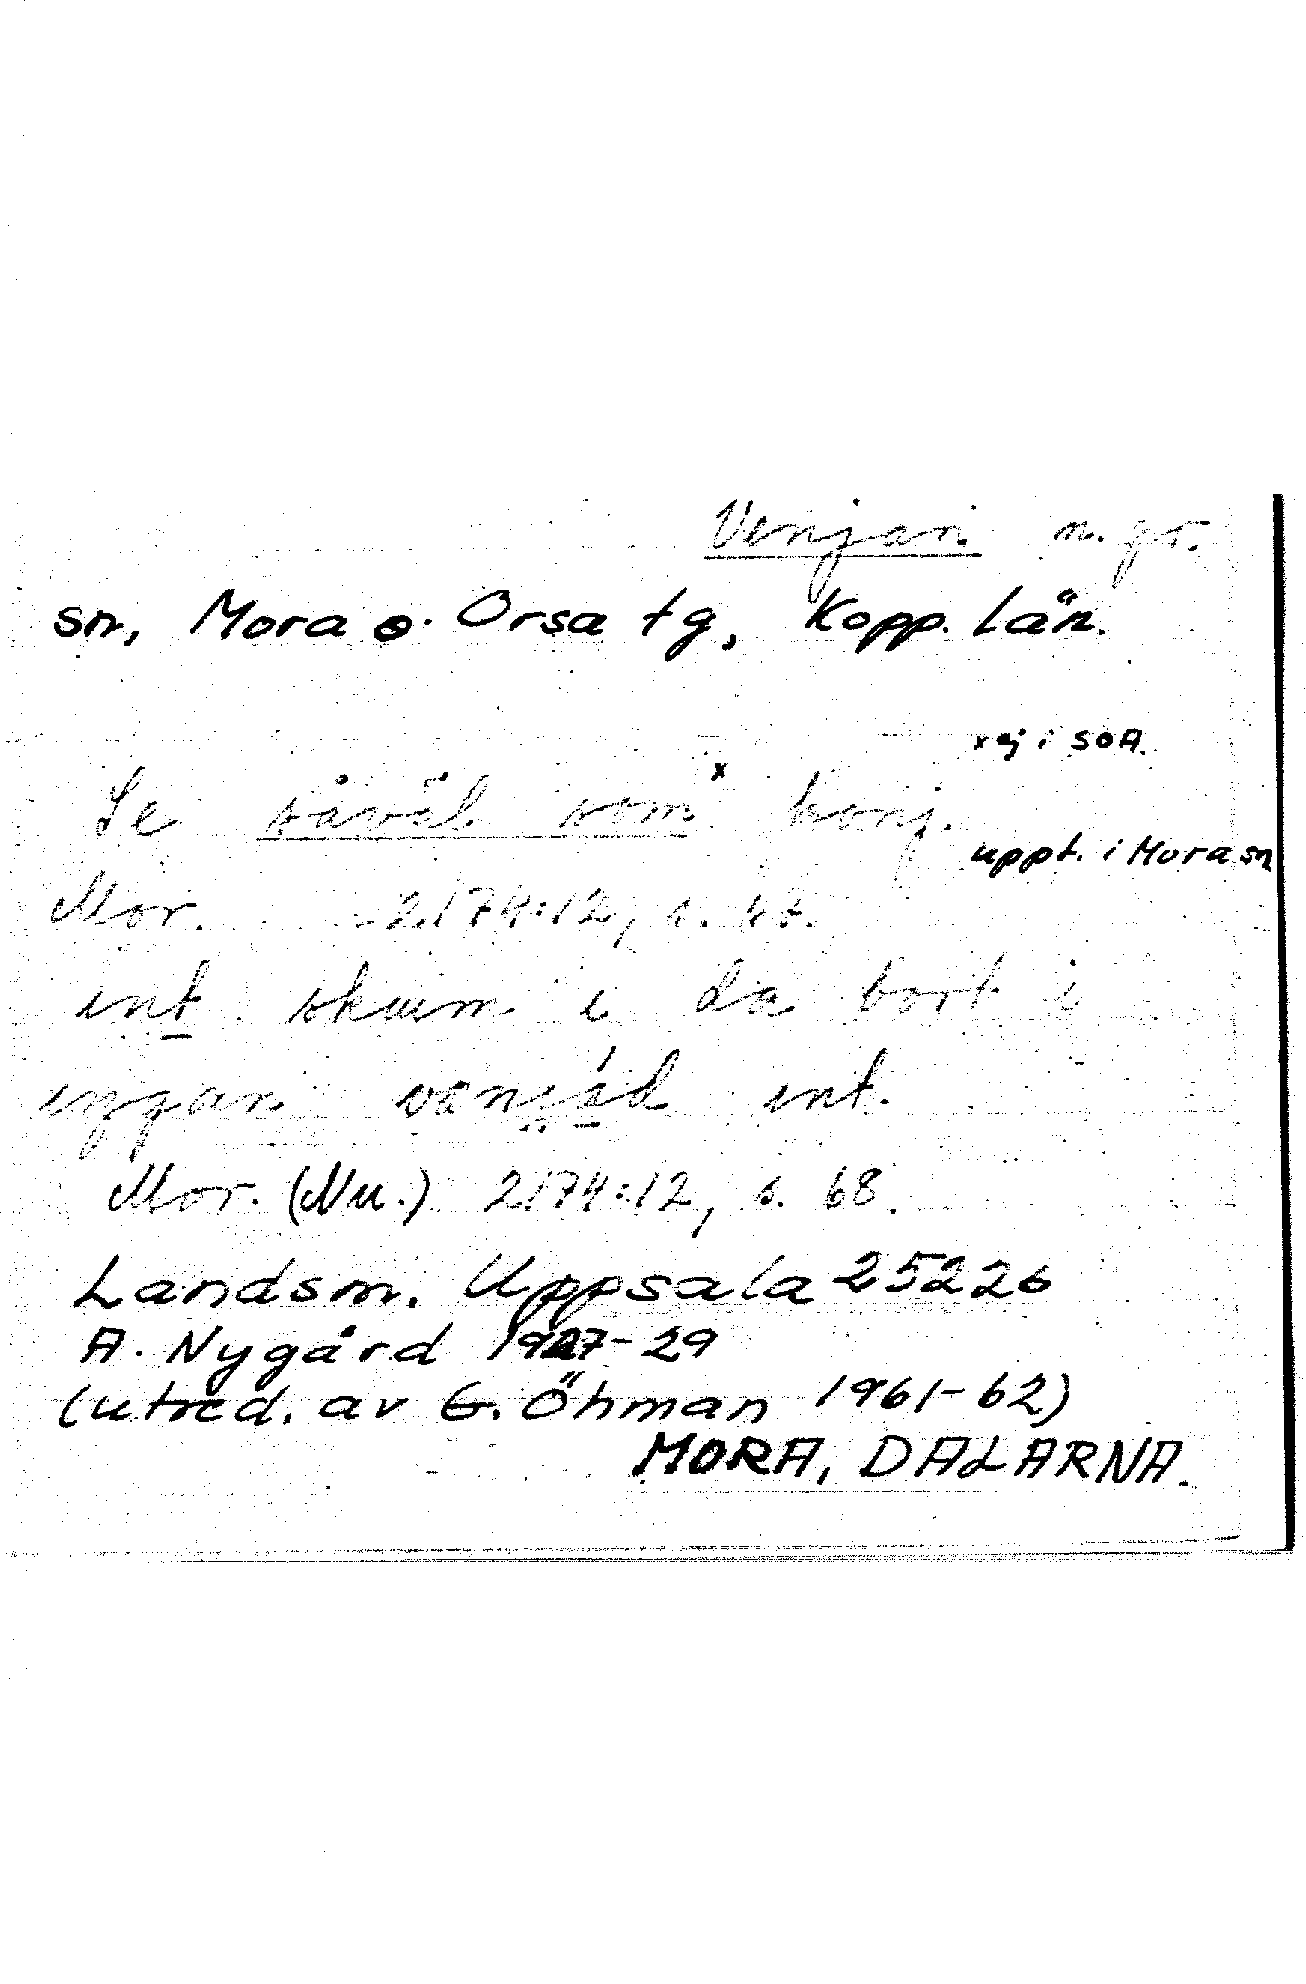 Venjan n. gr.
sn, Mora o. Orsa tg, Kopp. län.
x ej i SOA.
Se såväl som x konj.
uppt. i Mora sn
Mor. 2174:12, s. 67.
int skum i da bort i
vænjád int.
Mor. (Nu.) 2174:12, s. 68.
Landsm. Uppsala 25226
A. Nygård 1927-29
(utred. av G. Öhman 1961-62)
MORA, DALARNA.